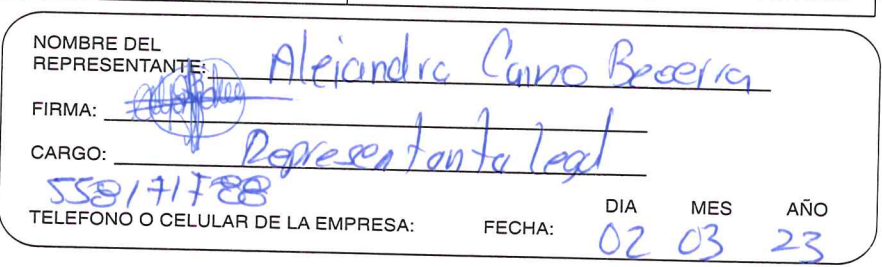 NOMBRE DEL
REPRESENTANTE: Alejandra Caino Becerra
FIRMA:
CARGO: Representanta legal
558171788
TELEFONO O CELULAR DE LA EMPRESA: FECHA: DIA MES AÑO
02 03 23